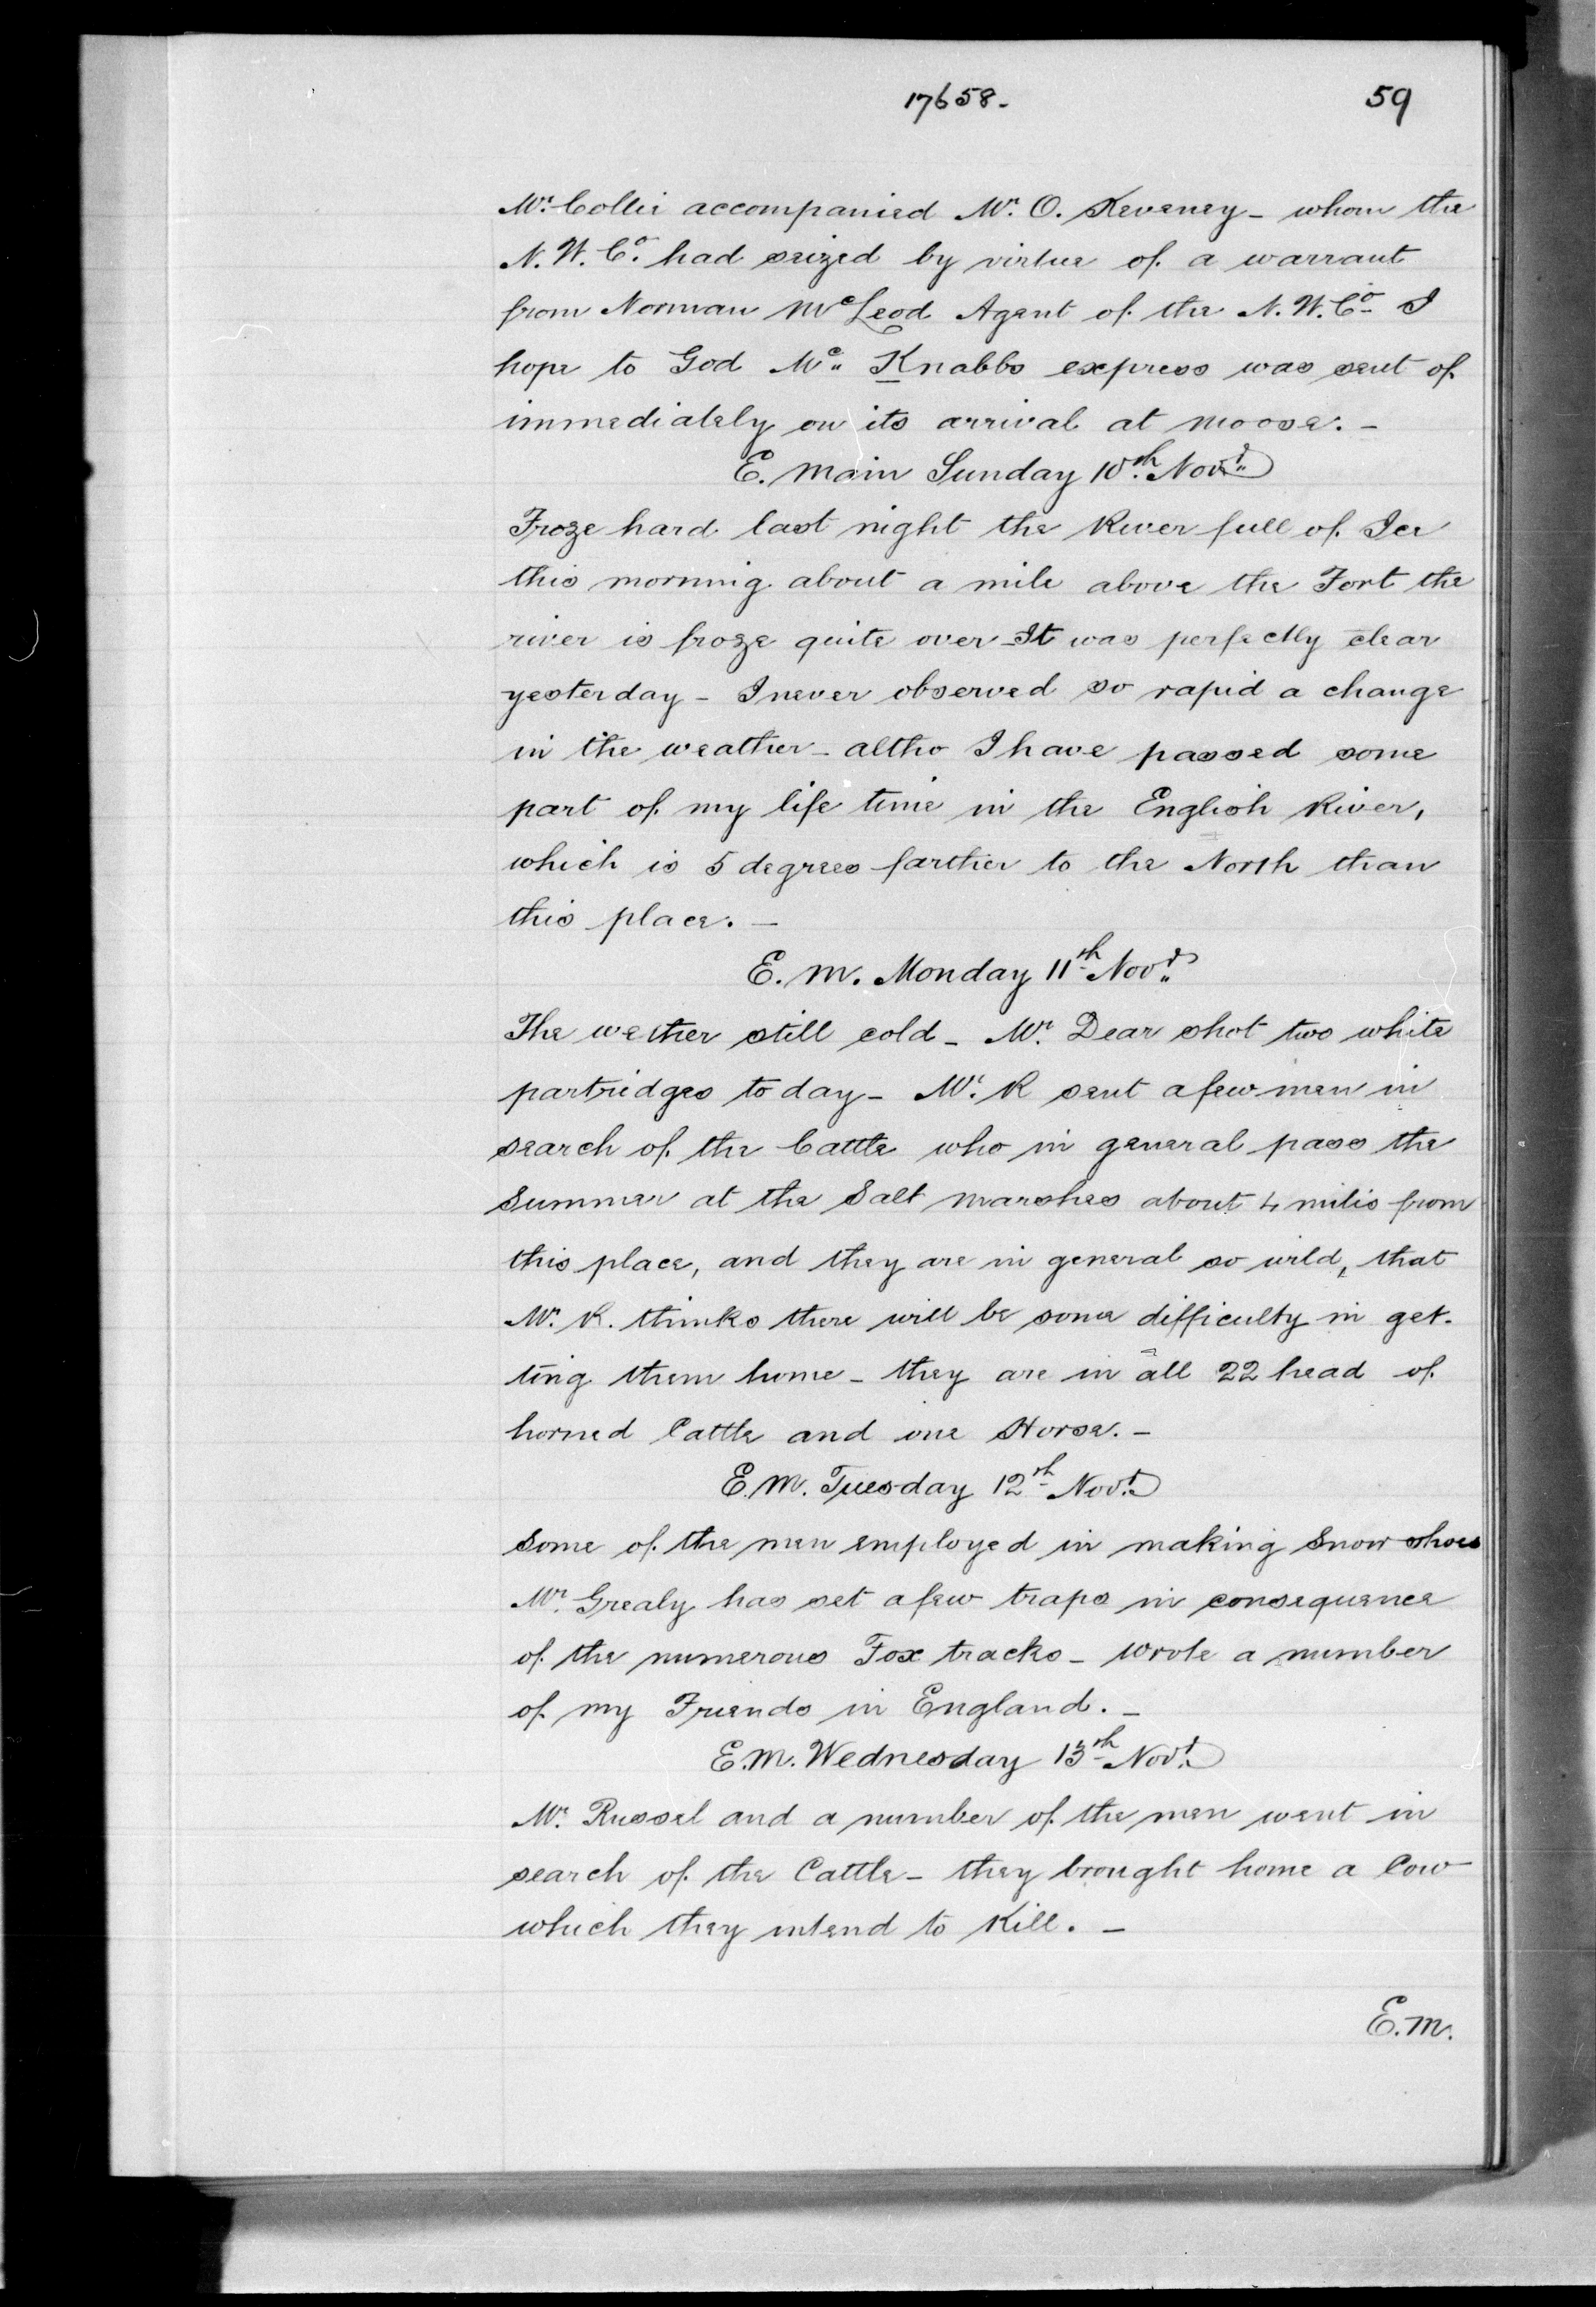 17658.
59
Mr. Collie accompanied Mr. O. Keveney - whom the
N. W. Co. had seized by virtue of a warrant
from Norman McLeod Agent of the N. W. Co - I
hope to God Mc. Knabbs express was sent of
immediately on its arrival at Moose. -
E. Main Sunday 10th. Novr.
Froze hard last night the River full of Ice
this morning about a mile above the Fort the
river is froze quite over - It was perfectly clear
yesterday - I never observed so rapid a change
in the weather - altho I have passed some
part of my life time in the English River,
which is 5 degrees farther to the North than
this place. -
E. M. Monday 11th Novr.
The wether still cold - Mr. Dear shot two white
partridges to day - Mr. R sent a few men in
search of the Cattle who in general pass the
Summer at the Salt Marshes about 4 miles from
this place, and they are in general so wild, that
Mr. R. thinks there will be some difficulty in get-
ting them home - they are in all 22 head of
horned Cattle and one Horse. -
E. M. Tuesday 12th Novr.
Some of the men employed in making Snow shoes
Mr. Grealy has set a few traps in consequence
of the numerous Fox tracks - wrote a number
of my Friends in England. -
E. M. Wednesday 13th Novr.
Mr. Russel and a number of the men went in
search of the Cattle - they brought home a Cow
which they intend to Kill. -
E. M.